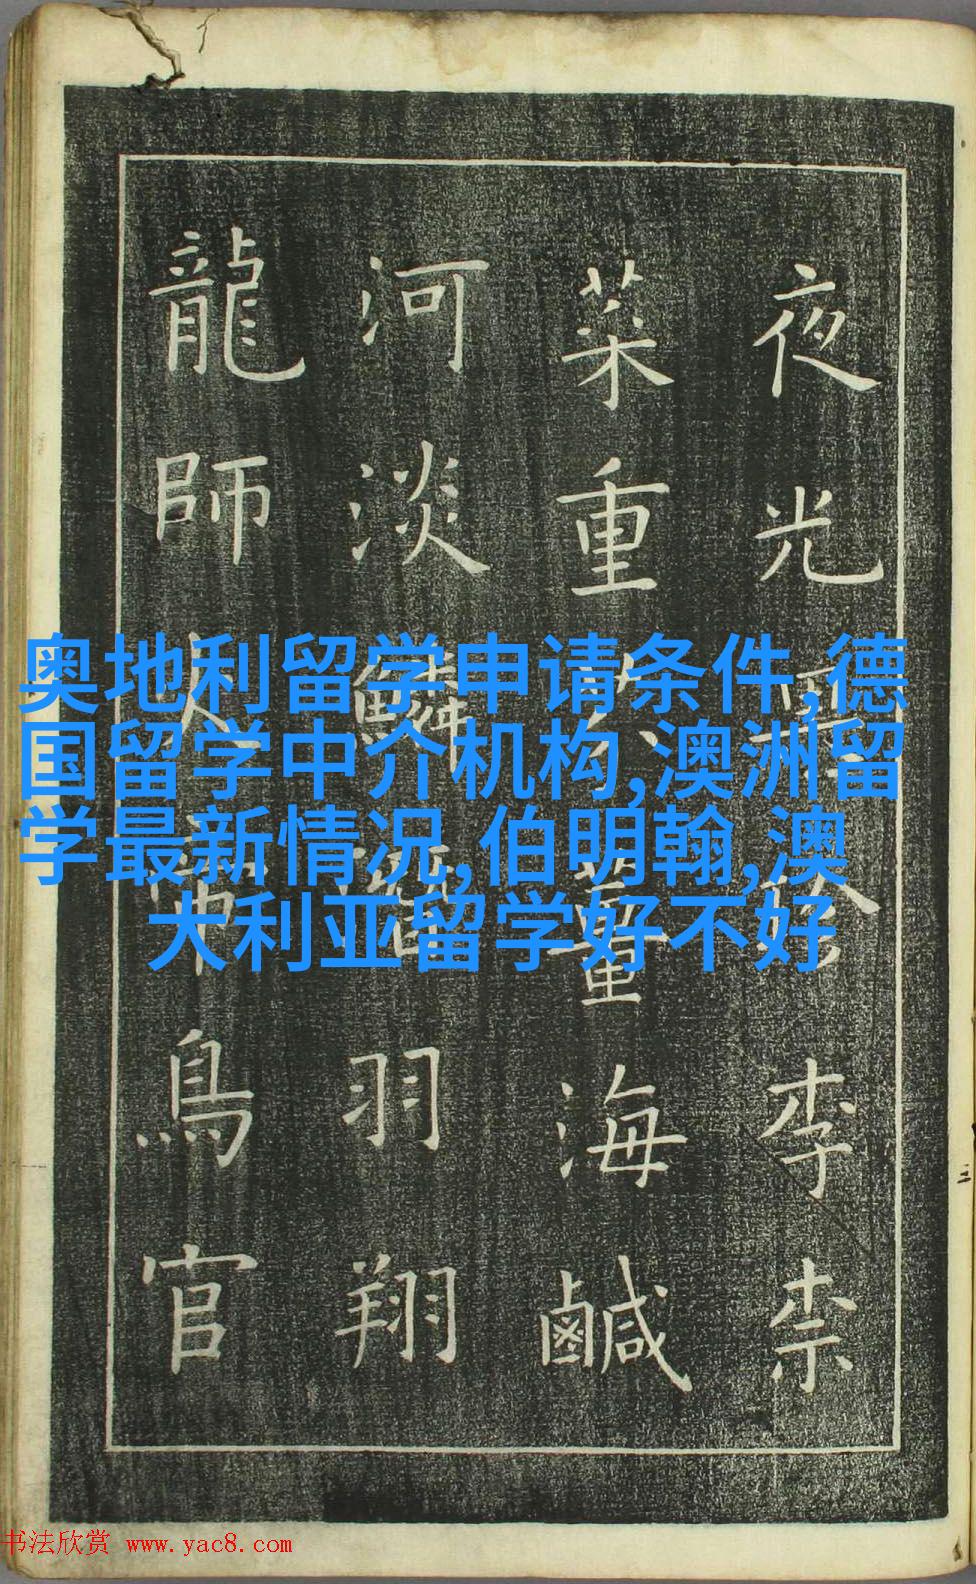 夜光果珍李柰
菜重芥薑海鹹
河淡鱗潛羽翔
龍師火帝鳥官
奥地利留学申请条件,德
国留学中介机构,澳洲留
学最新情况,伯明翰,澳
大利亚留学好不好
书法欣赏 www.yac8.com